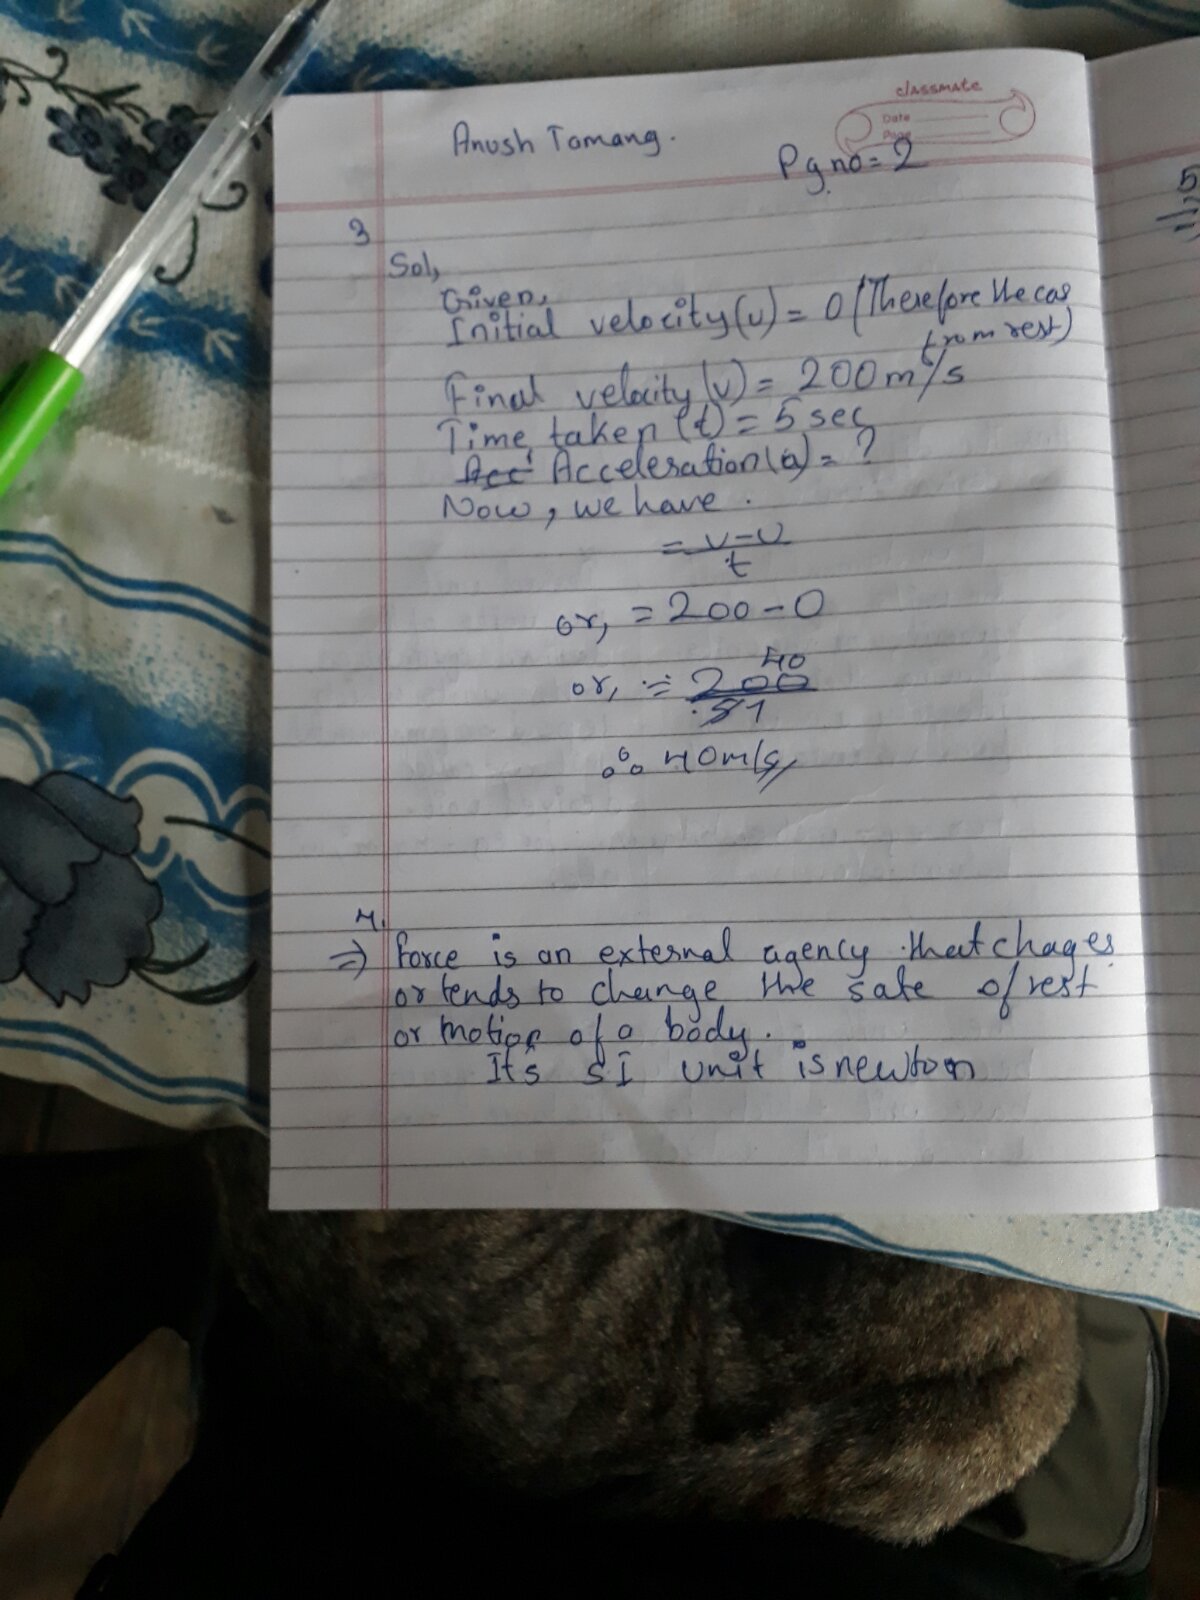 classmate
Date
Page
Anush Tamang.
Pg.no = 2
3
Sol,
Given,
Initial velocity (u) = 0 (Therefore the car
from rest)
Final velocity (v) = 200 m/s
Time taken (t) = 5 sec
Acc Acceleration (a) = ?
Now, we have.
= v-u
t
or, = 200 - 0
40
or, = 200
5 1
∴ 40m/s
4.
⇒) Force is an external agency that chages
or tends to change the sate of rest
or motion of a body.
It's SI unit is newton
5